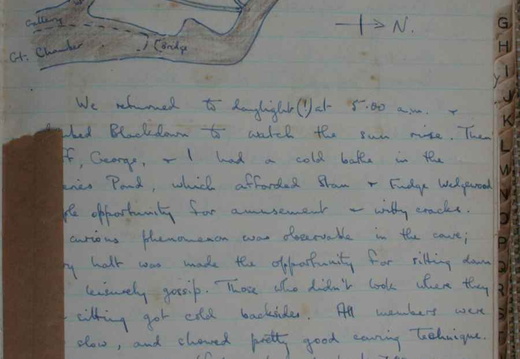 Gallery
Gt. Chamber
Bridge
N.
We returned to daylight (!) at 5.00 a.m. &
Blackdown to watch the sun rise. Then
George, & I had a cold bathe in the
Pond, which afforded Stan & Fudge Wedgwood
opportunity for amusement & witty cracks.
curious phenomenon was observable in the cave;
halt was made the opportunity for sitting down
leisurely gossip. Those who didn't look where they
sitting got cold backsides. All members were
slow, and showed pretty good caving technique.
G
H
I
J
K
L
M
N
O
P
Q
R
S